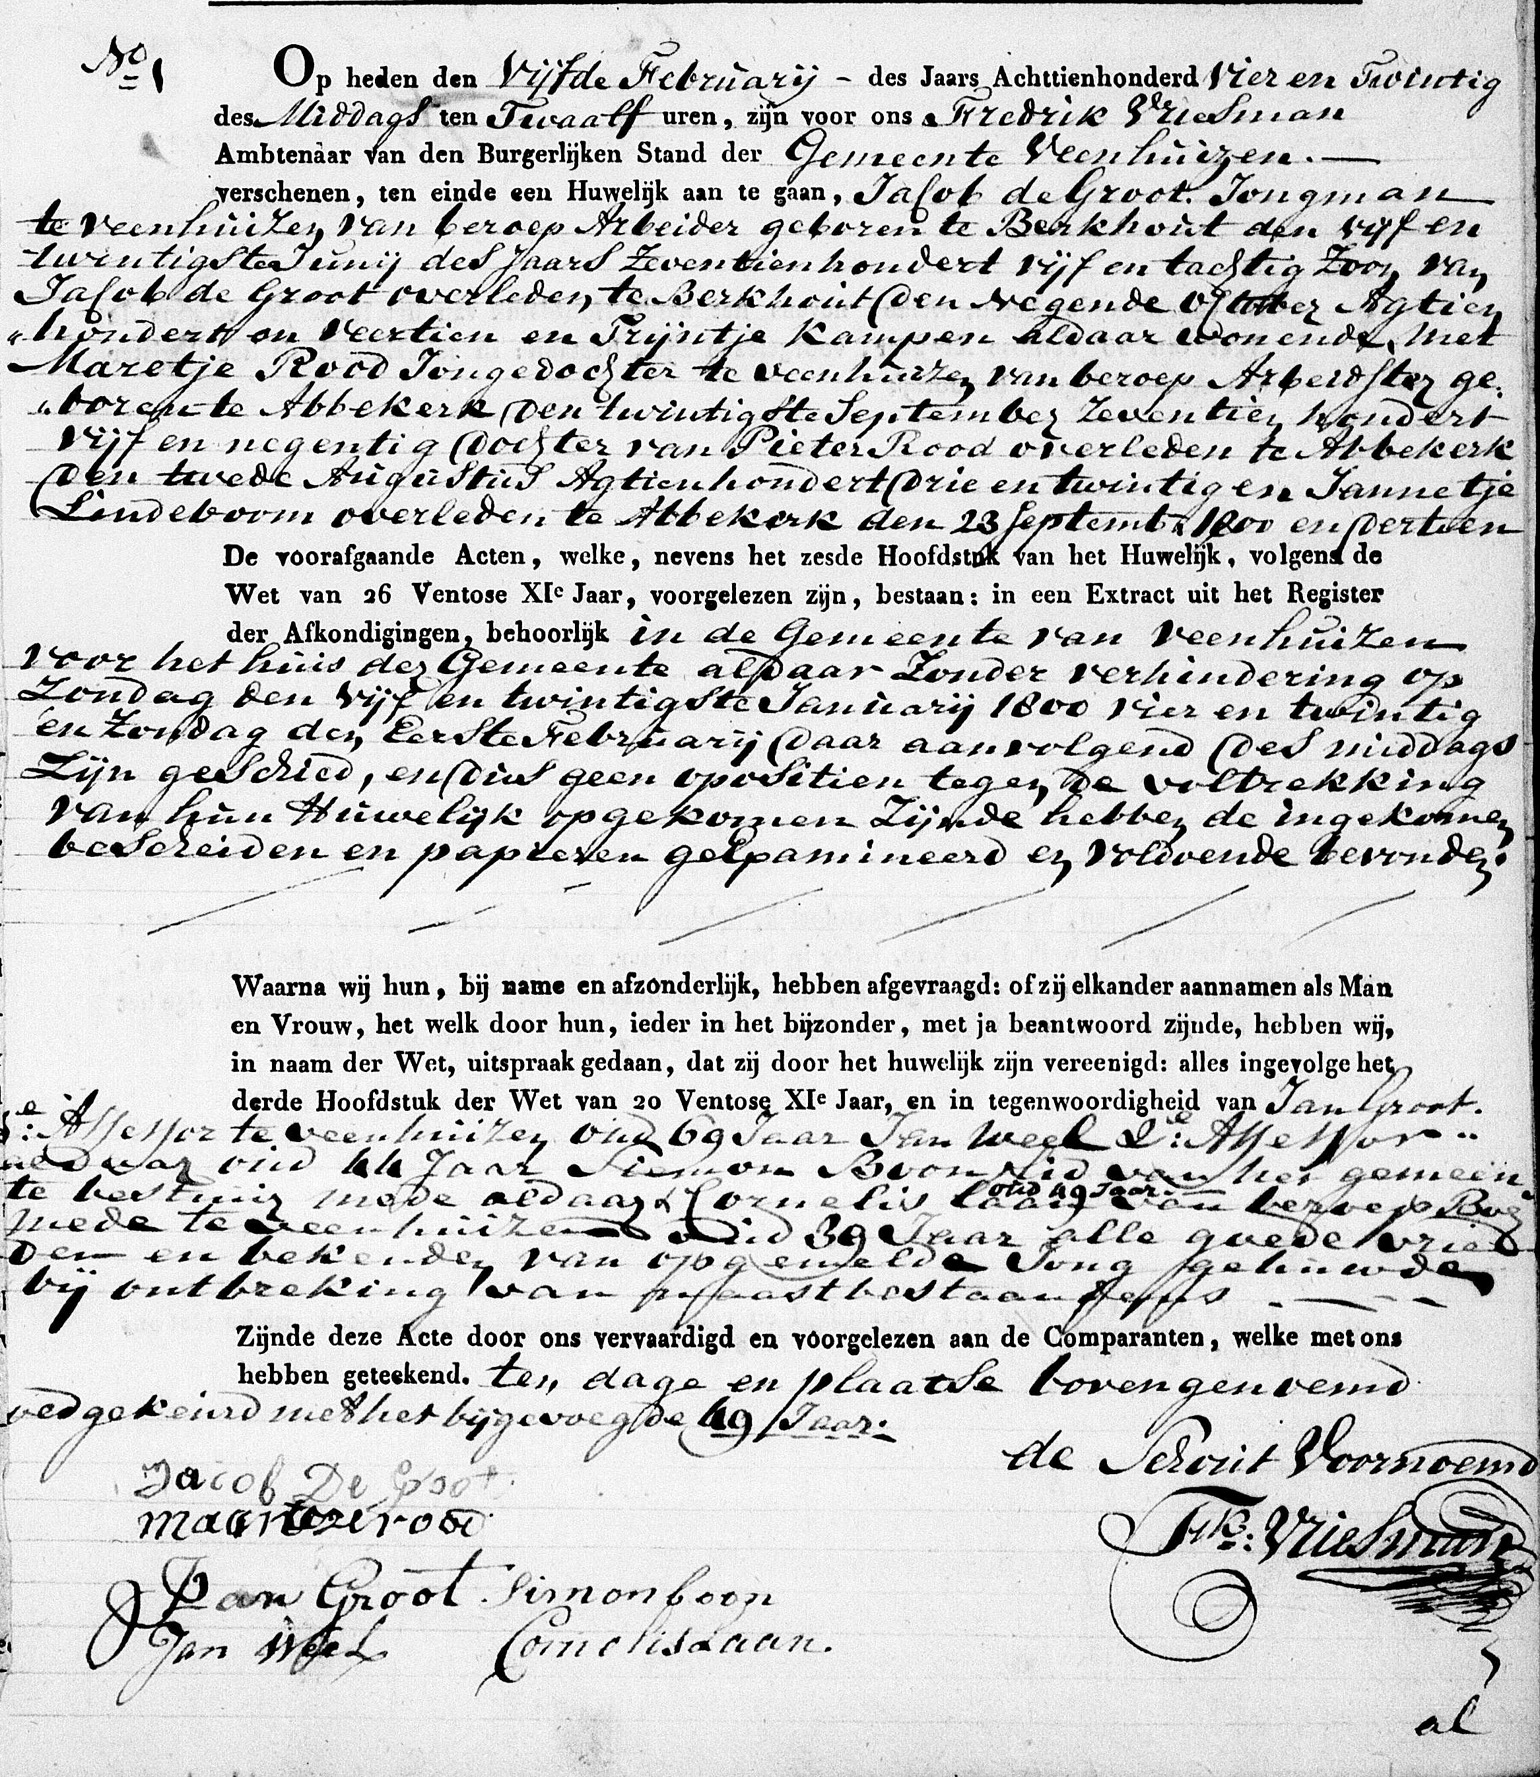 No 1
Op heden den Vijfde Februarij - des Jaars Achttienhonderd Vier en Twintig
des Middags ten Twaalf uren, zijn voor ons Fredrik Vriesman
Ambtenaar van den Burgerlijken Stand der Gemeente Veenhuizen. —
verschenen, ten einde een Huwelijk aan te gaan, Jacob de Groot. Jongman
te Veenhuizen van beroep Arbeider geboren te Berkhout den vijf en
twintigste Junij des Jaars Zeventienhondert vijf en tachtig Zoon van
Jacob de Groot overleden te Berkhout den Negende October Agtien
"hondert en Veertien en Trijntje Kampen aldaar wonende, Met
Maretje Rood Jongedochter te Veenhuizen van beroep Arbeidster ge:
"boren te Abbekerk den twintigste September Zeventien hondert
vijf en negentig Dochter van Pieter Rood overleden te Abbekerk
den twede Augustus Agtienhondert Drie en twintig en Jannetje
Lindeboom overleden te Abbekerk den 23 Septemb: 1800 en dertien
De voorafgaande Acten, welke, nevens het zesde Hoofdstuk van het Huwelijk, volgens de
Wet van 26 Ventose XIe Jaar, voorgelezen zijn, bestaan: in een Extract uit het Register
der Afkondigingen, behoorlijk in de Gemeente van Veenhuizen
voor het huis der Gemeente aldaar Zonder verhindering op
Zondag den Vijf en twintigste Januarij 1800 vier en twintig
en Zondag den Eerste Februarij daar aanvolgend des middags
Zijn geschied, en dus geen opositien tegen de voltrekking
van hun Huwelijk opgekomen Zijnde hebben de ingekomen
bescheiden en papieren gexamineerd en voldoende bevonden.
Waarna wij hun, bij name en afzonderlijk, hebben afgevraagd: of zij elkander aannamen als Man
en Vrouw, het welk door hun, ieder in het bijzonder, met ja beantwoord zijnde, hebben wij,
in naam der Wet, uitspraak gedaan, dat zij door het huwelijk zijn vereenigd: alles ingevolge het
derde Hoofdstuk der Wet van 20 Ventose XIe Jaar, en in tegenwoordigheid van Jan Groot.
Assessor te Veenhuizen oud 69 Jaar Jan Weel 2e: Assessor "
aldaar oud 44 Jaar Siemon Boon Lid van het gemeen:
oud 49 Jaar
te bestuur mede aldaar & Cornelis Laan van beroep
mede te Veenhuizen oud 39 Jaar alle goede vrien
den en bekenden van opgemelde Jong gehuwden
bij ontbreking van naastbestaandens
Zijnde deze Acte door ons vervaardigd en voorgelezen aan de Comparanten, welke met ons
hebben geteekend. ten dage en plaatse bovengenoemd
goedgekeurd met het bijgevoegde 49 Jaar.
de Schout Voornoemd
Jacob De Groot
maartze rood
Fk: Vriesman
Jan Groot Simon boon
Jan Weel Cornelis Laan.
al